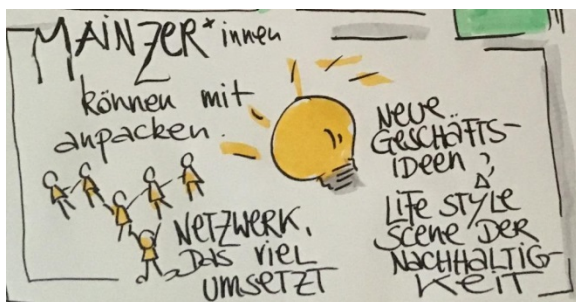 MAINZER*innen
können mit
anpacken.
NETZWERK,
DAS VIEL
UMSETZT
NEUE
GESCHÄFTS-
IDEEN
LIFE STYLE
SCENE DER
NACHHALTIG-
KEIT